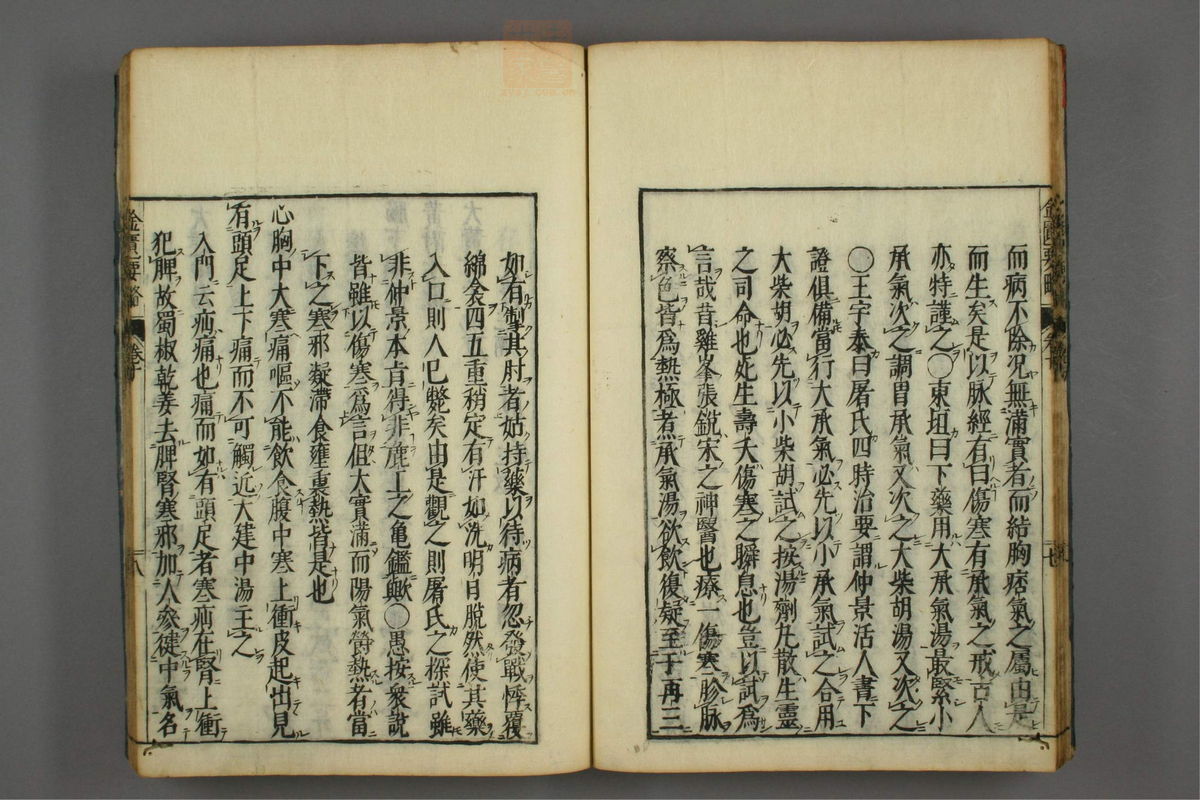 而病不除况無滿實者而結胸痞氣之屬由是
而生矣是以脉經有曰傷寒有承氣之戒古人
亦特謹之〇東垣曰下藥用大承氣湯最緊小
承氣次之調胃承氣又次之大柴胡湯又次之
〇王宇泰曰屠氏四時治要謂仲景活人書下
證俱備當行大承氣必先以小承氣試之合用
大柴胡必先以小柴胡試之按湯劑丸散生靈
之司命也死生壽夭傷寒之瞬息也豈以試為
言哉昔雞峯張銳宋之神醫也療一傷寒診脉
察色皆為熱極煮承氣湯欲飲復疑至于再三
如有掣其肘者姑持藥以待病者忽發戰悸覆
綿衾四五重稍定有汗如洗明日脫然使其藥
入口則人已斃矣由是觀之則屠氏之探試雖
非仲景本旨得非麄工之亀鑑歟〇愚按衆說
皆雖以傷寒爲言但大實滿而陽氣欝熱者當
下之寒邪凝滯食壅裏熱皆是也
心胸中大寒痛嘔不能飲食腹中寒上衝皮起出見
有頭足上下痛而不可觸近大建中湯主之
入門云疝痛也痛而如有頭足者寒疝在腎上衝
犯脾故蜀椒乾姜去脾腎寒邪加人參健中氣名
金匱要略
卷十
八